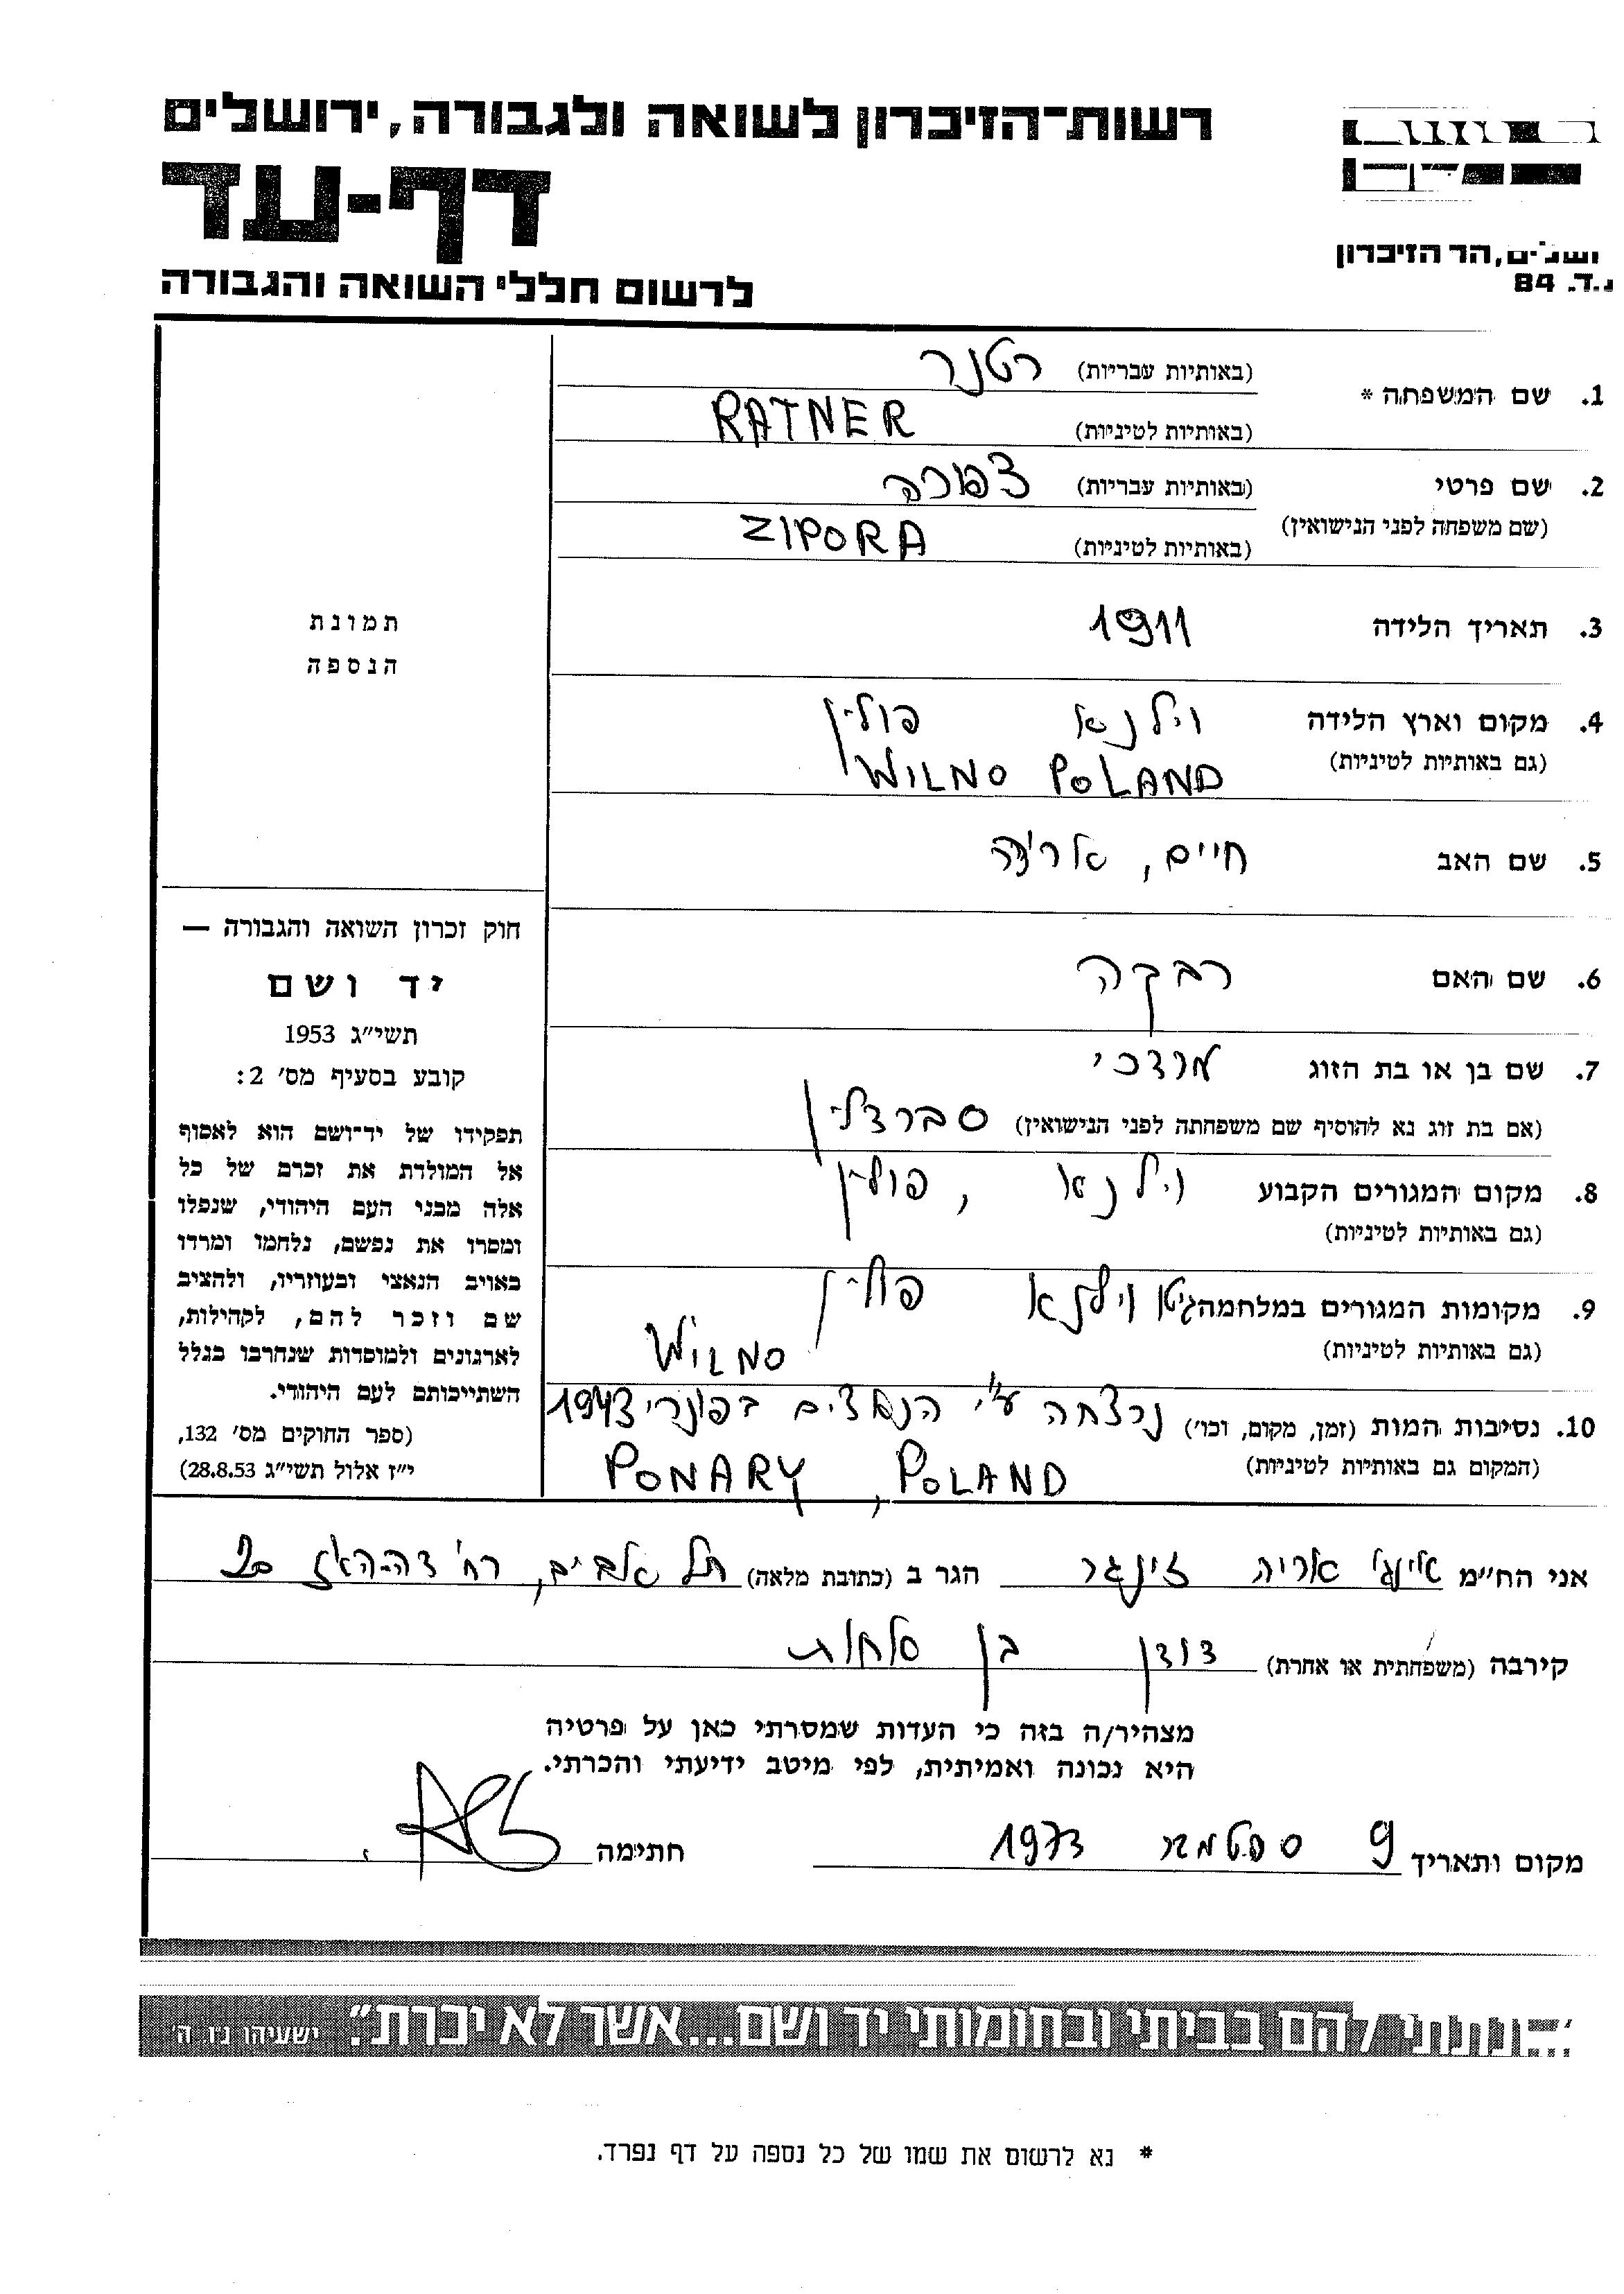 רשות־הזיכרון לשואה ולגבורה, ירושלים
דף-עד
לרשום חללי השואה והגבורה
הר הזיכרון
84 .ד.
1. שם המשפחה * (באותיות עבריות) רטנר
(באותיות לטיניות) RATNER
2. שם פרטי (באותיות עבריות) צפורה
(שם משפחה לפני הנישואין) (באותיות לטיניות) ZIPORA
3. תאריך הלידה 1911
4. מקום וארץ הלידה וילנא פולין
(גם באותיות לטיניות) WILNO POLAND
5. שם האב חיים, אריה
6. שם האם רבקה
7. שם בן או בת הזוג מרדכי
(אם בת זוג נא להוסיף שם משפחתה לפני הנישואין) סברדלין
8. מקום המגורים הקבוע וילנא, פולין
(גם באותיות לטיניות)
9. מקומות המגורים במלחמה גיטו וילנא פולין
(גם באותיות לטיניות) WILNO
10. נסיבות המות (זמן, מקום, וכו') נרצחה ע"י הנאצים בפונרי 1943
(המקום גם באותיות לטיניות) PONARY, POLAND
תמונת
הנספה
חוק זכרון השואה והגבורה —
יד ושם
תשי״ג 1953
קובע בסעיף מס' 2:
תפקידו של יד־ושם הוא לאסוף
אל המולדת את זכרם של כל
אלה מבני העם היהודי, שנפלו
ומסרו את נפשם, נלחמו ומרדו
באויב הנאצי ובעוזריו, ולהציב
שם וזכר להם, לקהילות,
לארגונים ולמוסדות שנחרבו בגלל
השתייכותם לעם היהודי.
(ספר החוקים מס' 132,
י״ז אלול תשי״ג 28.8.53)
אני הח״מ אריה זינגר הגר ב (כתובת מלאה) תל אביב, רח'
קירבה (משפחתית או אחרת) דודן בן
מצהיר/ה בזה כי העדות שמסרתי כאן על פרטיה
היא נכונה ואמיתית, לפי מיטב ידיעתי והכרתי.
מקום ותאריך 9 ספטמבר 1973 חתימה
ונתתי להם בביתי ובחומותי יד ושם...אשר לא יכרת״. ישעיהו נו, ה'
* נא לרשום את שמו של כל נספה על דף נפרד.